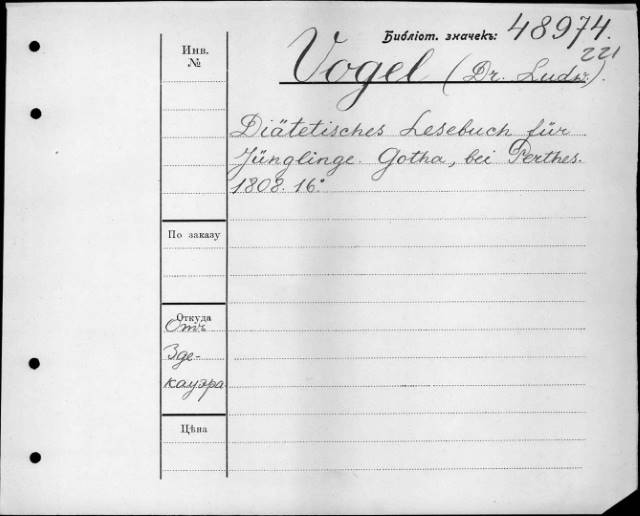 Библіот. значекъ: 48974.
221
Инв.
№
Vogel (Dr. Ludw.).
Diätetisches Lesebuch für
Jünglinge. Gotha, bei Perthes.
1808. 16°.
По заказу
Откуда
Отъ
Зде-
кауэра
Цѣна